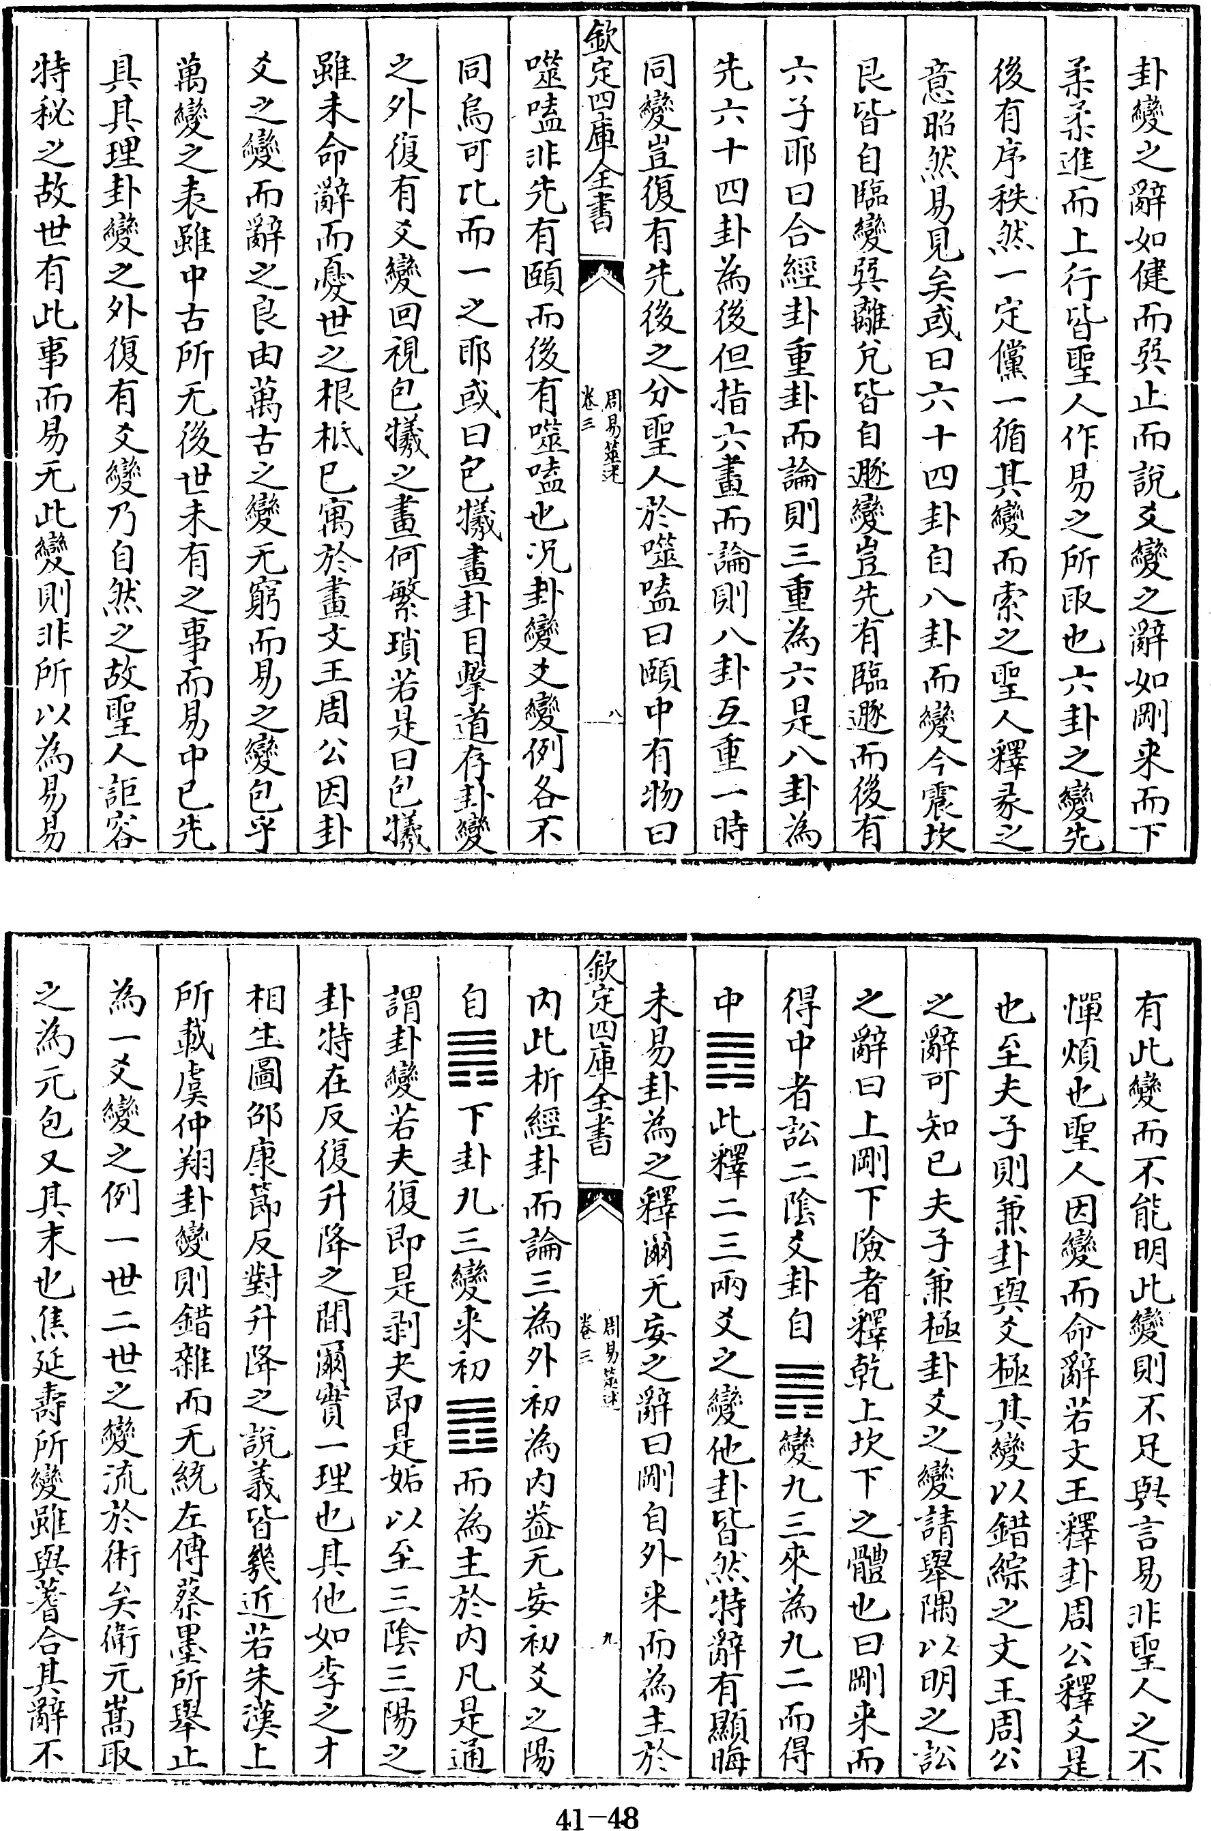 卦變之辭如健而巽止而說爻變之辭如剛来而下
柔柔進而上行皆聖人作易之所取也六卦之變先
後有序秩然一定儻一循其變而索之聖人釋彖之
意昭然易見矣或曰六十四卦自八卦而變今震坎
艮皆自臨變巽離兌皆自遯變豈先有臨遯而後有
六子耶曰合經卦重卦而論則三重為六是八卦為
先六十四卦為後但指六畫而論則八卦互重一時
同變豈復有先後之分聖人於噬嗑曰頤中有物曰
欽定四庫全書 周易筮述 卷三 八
噬嗑非先有頤而後有噬嗑也况卦變爻變例各不
同烏可比而一之耶或曰包犧畫卦目擊道存卦變
之外復有爻變回視包犧之畫何繁瑣若是曰包犧
雖未命辭而憂世之根柢已寓於畫文王周公因卦
爻之變而辭之良由萬古之變无窮而易之變包乎
萬變之表雖中古所无後世未有之事而易中已先
具具理卦變之外復有爻變乃自然之故聖人詎容
特秘之故世有此事而易无此變則非所以為易易
有此變而不能明此變則不足與言易非聖人之不
憚煩也聖人因變而命辭若文王釋卦周公釋爻是
也至夫子則兼卦與爻極其變以錯綜之文王周公
之辭可知已夫子兼極卦爻之變請舉隅以明之訟
之辭曰上剛下險者釋乾上坎下之體也曰剛来而
得中者訟二陰爻卦自 變九三來為九二而得
中 此釋二三兩爻之變他卦皆然特辭有顯晦
未易卦為之釋爾无妄之辭曰剛自外来而為主於
欽定四庫全書 周易筮述 卷三 九
内此析經卦而論三為外初為内葢无妄初爻之陽
自䷠下卦九三變来初䷘而為主於内凡是通
謂卦變若夫復即是剥夬即是姤以至三陰三陽之
卦特在反復升降之間爾實一理也其他如李之才
相生圖邵康節反對升降之說義皆㡬近若朱漢上
所載虞仲翔卦變則錯雜而无統左傳蔡墨所舉止
為一爻變之例一世二世之變流於術矣衛元嵩取
之為元包又其末也焦延壽所變雖與蓍合其辭不
41-48